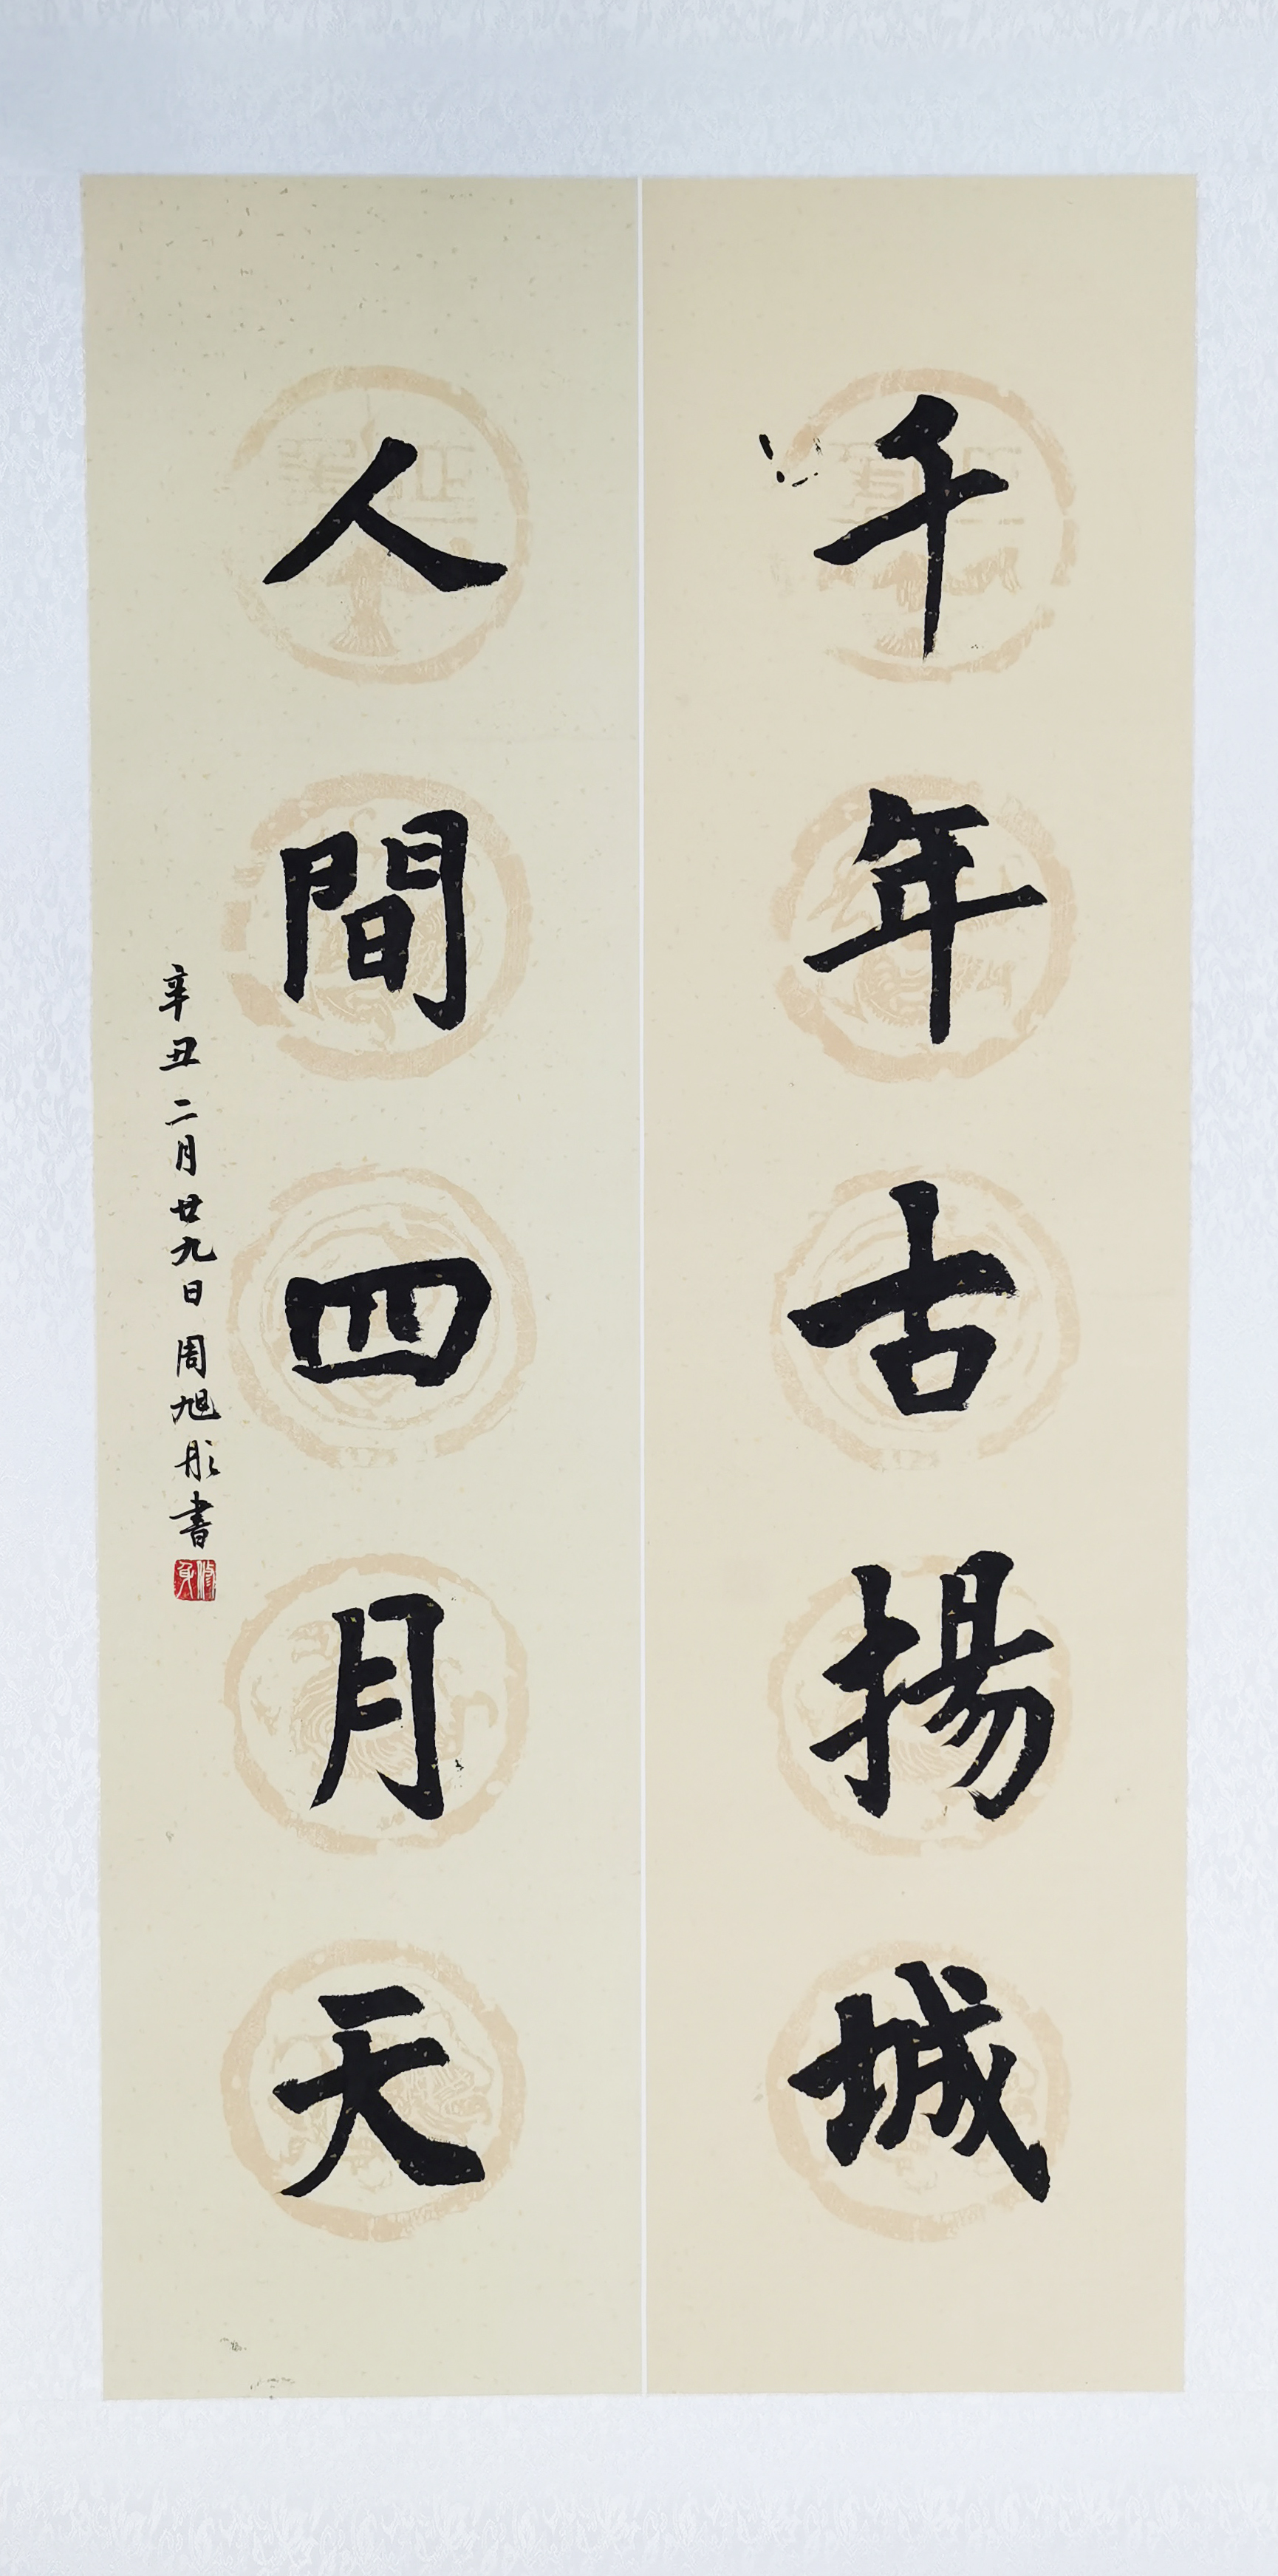 千年古揚城
人間四月天
辛丑二月廿九日周旭彤書